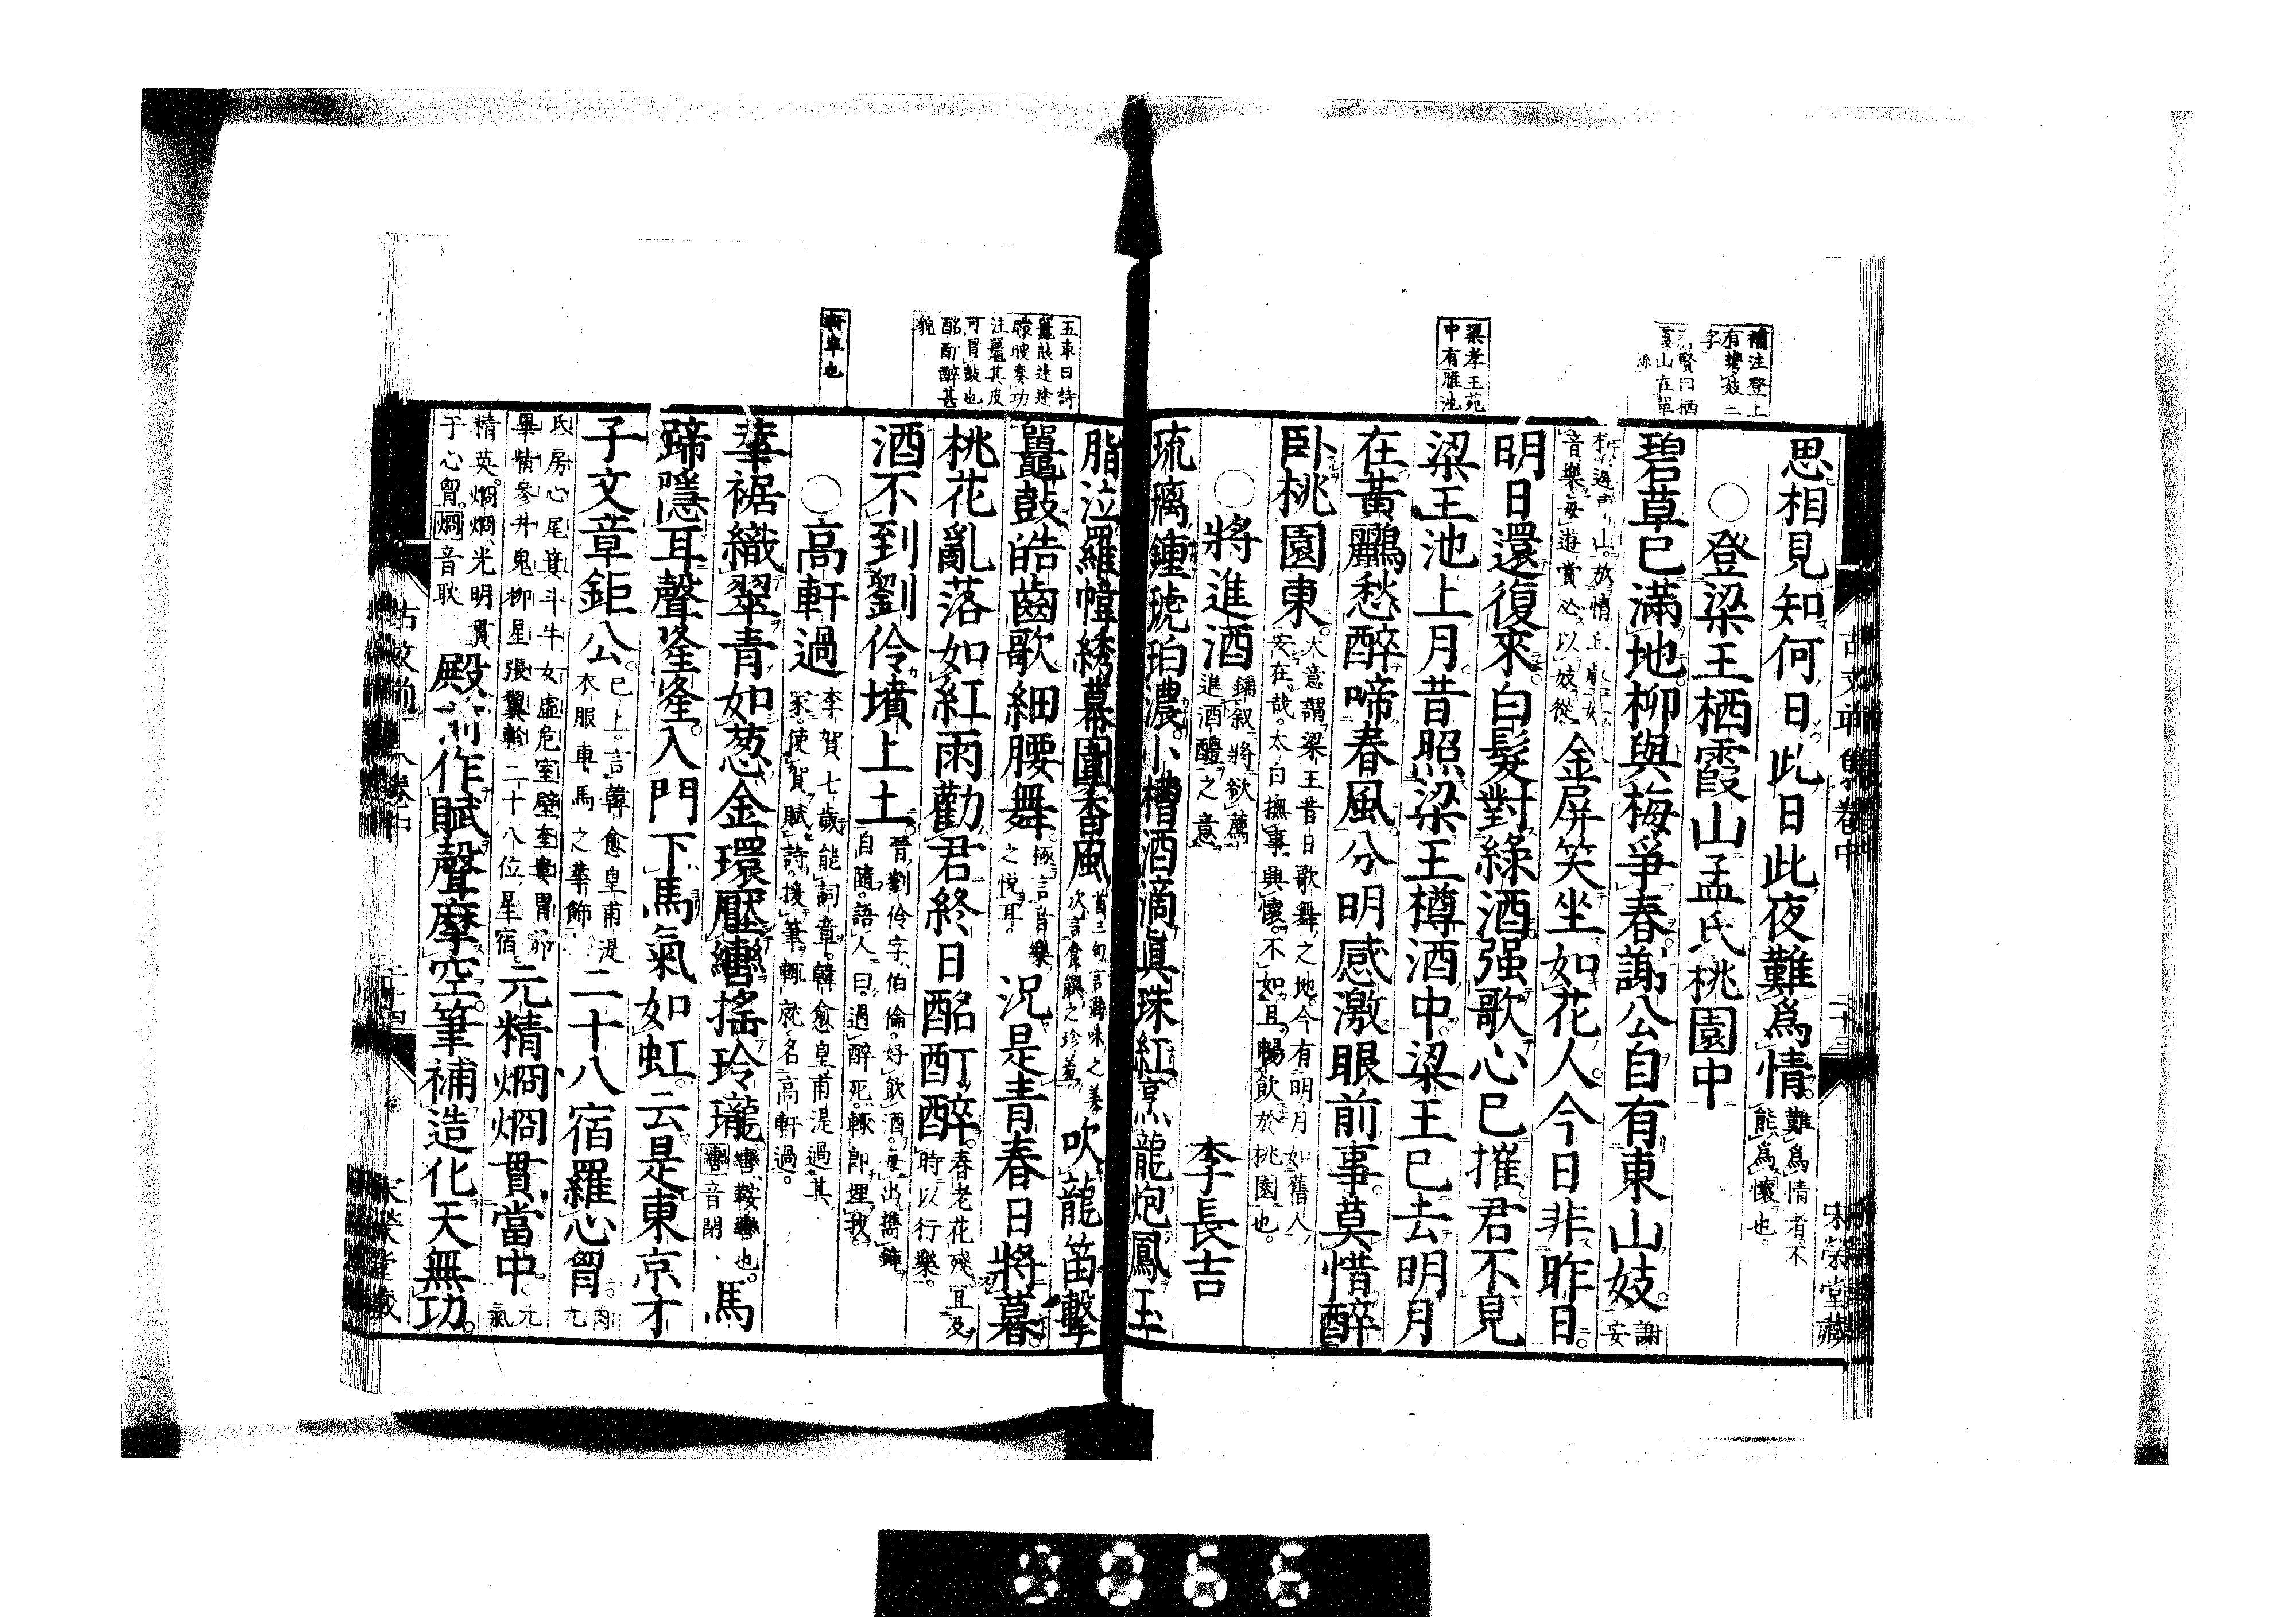 補注登上
有攜妓二
字
梁孝王苑
中有雁池
思相見知何日此日此夜難爲情 難爲情者不能爲懷也
○登梁王栖霞山孟氏桃園中
碧草已滿地柳與梅爭春謝公自有東山妓 謝安
音樂每遊賞必以妓從 金屏笑坐如花人今日非昨日
明日還復來白髮對綠酒强歌心已摧君不見
梁王池上月昔照梁王樽酒中梁王已去明月
在黃鸝愁醉啼春風分明感激眼前事莫惜醉
臥桃園東 大意謂梁王昔日歌舞之地今有明月如舊人安在哉太白撫事興懷不如且暢飲於桃園也
○將進酒 鋪叙將欲薦進酒醴之意 李長吉
琉璃鍾琥珀濃小槽酒滴眞珠紅烹龍炮鳳玉
古文前集卷中
二十三
宋榮堂藏
五車曰詩
鼉鼓逢逢
矇瞍奏功
注鼉其皮
可冒鼓也
酩酊醉甚
貌
軒車也
脂泣羅幃綉幕圍香風 首三句言酒味之美次言食饌之珍羞 吹龍笛擊
鼉鼓皓齒歌細腰舞 極言音樂之悅耳 況是青春日將暮
桃花亂落如紅雨勸君終日酩酊醉 春老花殘宜及時以行樂
酒不到劉伶墳上土 晉劉伶字伯倫好飲酒每出攜鍾自隨語人曰遇醉死輒卽埋我
○高軒過 李賀七歲能詞章韓愈皇甫湜過其家使賀賦詩援筆輒就名高軒過
華裾織翠青如葱金環壓轡搖玲瓏 轡鞍轡也 轡音閉 馬
蹄隱耳聲隆隆入門下馬氣如虹云是東京才
子文章鉅公 已上言韓愈皇甫湜衣服車馬之華飾 二十八宿羅心胷 角亢
氐房心尾箕斗牛女虛危室壁奎婁胃昴畢觜參井鬼柳星張翼軫二十八位星宿 元精烱烱貫當中 元氣
精英烱烱光明貫于心胷 烱音耿 殿前作賦聲摩空筆補造化天無功